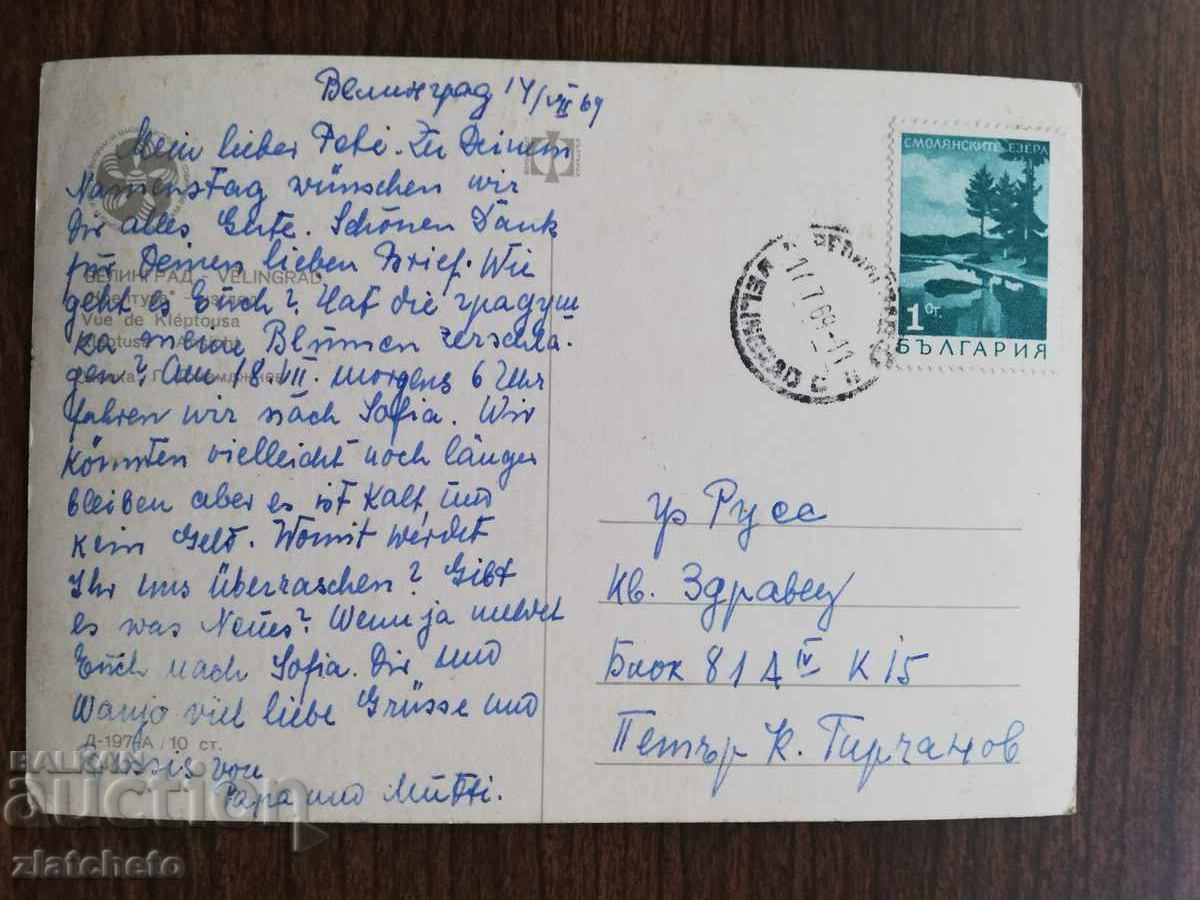 Велинград 14/VII 69
Mein lieber Peti. Zu Deinem
Namenstag wünschen wir
Dir alles Gute. Schönen Dank
für Deinen lieben Brief. Wie
geht es Euch? Hat die градуш
ка meine Blumen zerschla-
gen? Am 18.VII. morgens 6 Uhr
fahren wir nach Sofia. Wir
könnten vielleicht noch länger
bleiben aber es ist kalt, und
kein Geld. Womit werdet
Ihr uns überraschen? Gibt
es was Neues? Wenn ja meldet
Euch nach Sofia. Dir und
Wanjo viel liebe Grüsse und
Bussis von
Papa und Mutti.
ВЕЛИНГРАД - VELINGRAD
Vue de Kléptousa
Д-1970А / 10 ст.
СМОЛЯНСКИТЕ ЕЗЕРА
1 Ст.
БЪЛГАРИЯ
VELINGRAD
гр Русе
кв. Здравец
Блок 81 А IV К 15
Петър К. Гирчанов
BALKAN
auction
zlatcheto